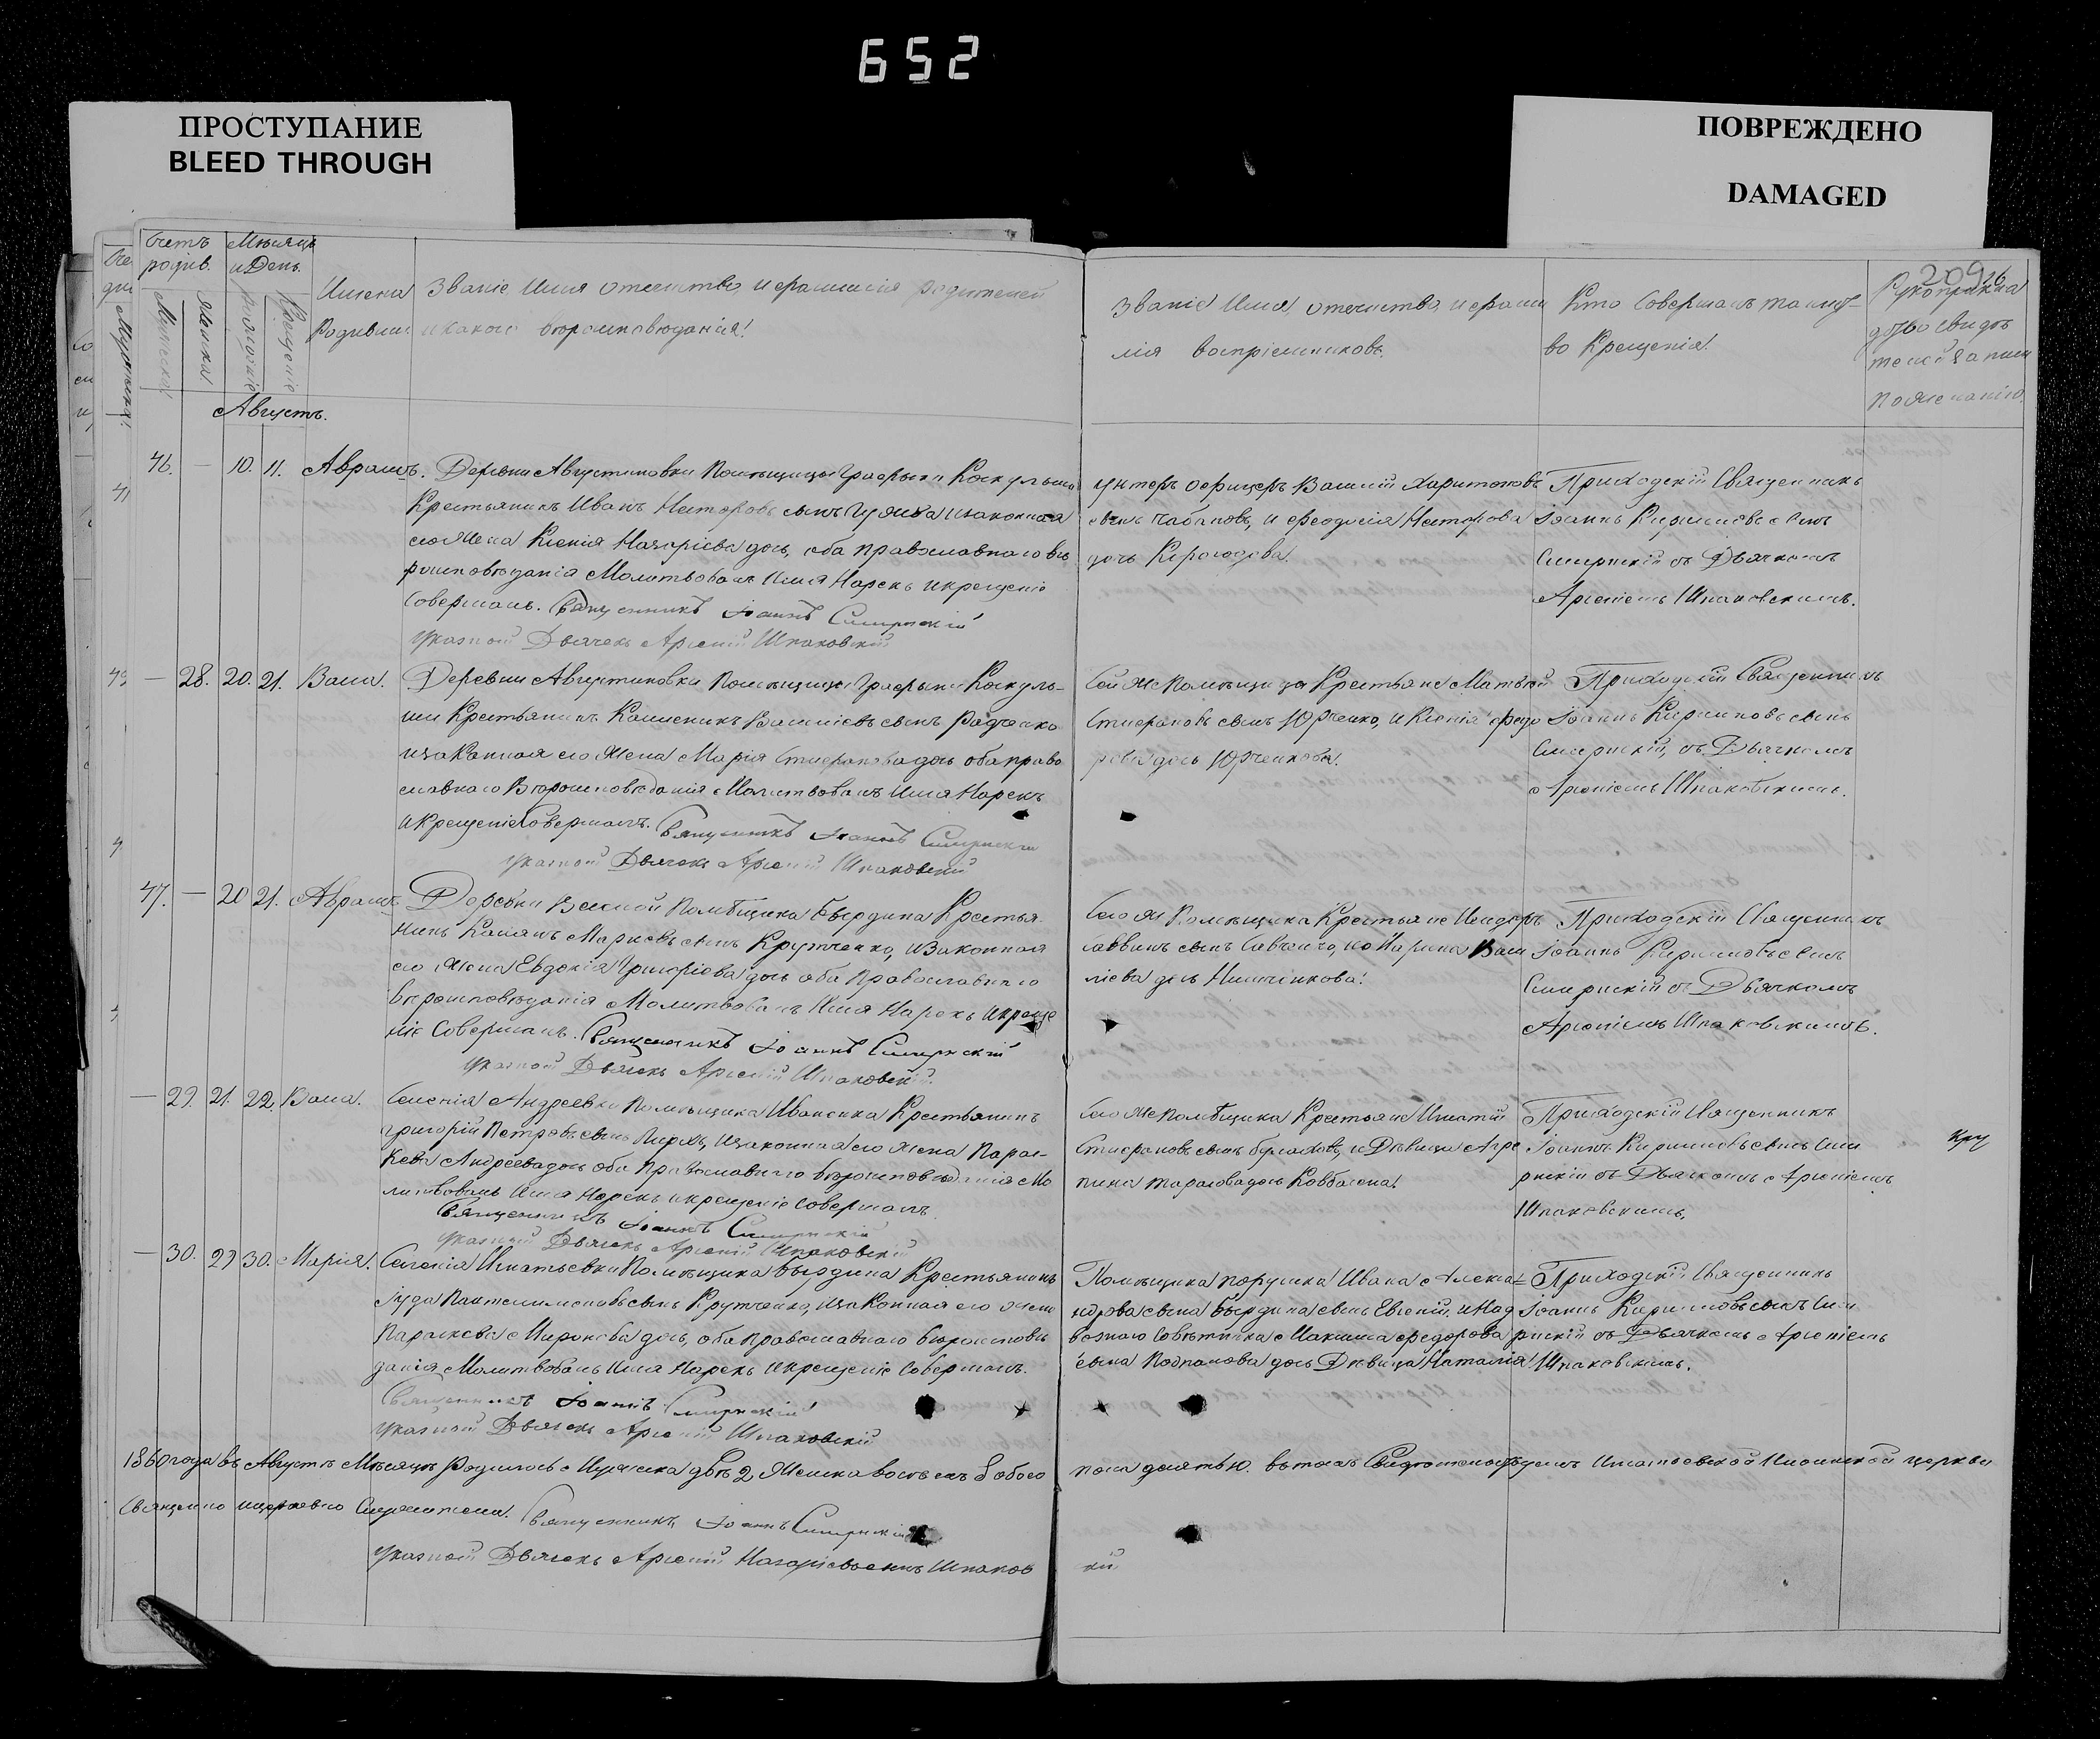 652
ПРОСТУПАНИЕ
BLEED THROUGH
ПОВРЕЖДЕНО
DAMAGED
209
Счетъ родив.
Мѣсяцъ и День.
Имена Родивш.
Званіе Имя отечество, и фамилія родителей
и какого вѣроисповѣданія!
Званіе Имя, отечество, и фами
лія воспріемниковъ.
Кто Совершалъ таинст-
во Крещенія!
Рукоприкла
дство свидѣ
телей запис
по желанію
Августъ.
46. — 10. 11. Аврамъ.
Деревни Августиновки Помѣщицы Графыни
Крестьянинъ Иванъ Несторовъ сынъ и законная
его Жена Ксенія Назаріева дочь, оба православнаго вѣ
роисповѣданія Молитвовалъ Имя Нарекъ и крещеніе
Совершалъ. Священникъ Іоаннъ Смирнскій
Указной Дьячекъ Арсеній Шпаковскій
Унтеръ офицеръ Василій Харитоновъ
сынъ Чабановъ, и Феодосія Несторова
дочь
Приходскій Священникъ
Іоаннъ Кириловъ сынъ
Смирнскій съ Дьячкомъ
Арсеніемъ Шпаковскимъ.
— 28. 20. 21. Васса.
Деревни Августиновки Помѣщицы Графыни Коскуль-
ши Крестьянинъ Василіевъ сынъ Радченко
и законная его Жена Марія Стефанова дочь оба право
славнаго Вѣроисповѣданія Молитвовалъ Имя Нарекъ
и крещеніе Совершалъ. Священникъ Іоаннъ Смирнскій
Указной Дьячекъ Арсеній Шпаковскій
Сей же Помѣщицы Крестьяне Матвѣй
Стефановъ сынъ Юрченко, и Ксенія Федо
рова дочь Юрченкова.
Приходскій Священникъ
Іоаннъ Кириловъ сынъ
Смирнскій, съ Дьячкомъ
Арсеніемъ Шпаковскимъ.
47. — 20 21. Аврамъ
Деревни Веселой Помѣщика Бырдина Крестья-
нинъ Марковъ сынъ Крутченко, и Законная
его Жена Евдокія Григоріева дочь оба Православнаго
Вѣроисповѣданія Молитвовалъ Имя Нарекъ и креще
ніе Совершалъ. Священникъ Іоаннъ Смирнскій
Указной Дьячекъ Арсеній Шпаковскій.
Сего же Помѣщика Крестьяне Исидоръ
Саввинъ сынъ Савченко, и Марина Васи
ліева дочь
Приходскій Священникъ
Іоаннъ Кириловъ сынъ
Смирнскій съ Дьячкомъ
Арсеніемъ Шпаковскимъ.
— 29. 21. 22. Васса.
Селенія Андреевки Помѣщика Иваненка Крестьянинъ
Григорій Петровъ сынъ и законная его жена Парас-
кева Андреева дочь оба Православнаго вѣроисповѣданія Мо
литвовалъ Имя Нарекъ и крещеніе Совершалъ
Священникъ Іоаннъ Смирнскій
Указной Дьячекъ Арсеній Шпаковскій
Сего же Помѣщика Крестьяне Игнатій
Стефановъ сынъ и Дѣвица Агре
пина Тарасова дочь
Приходскій Священникъ
Іоаннъ Кириловъ сынъ Сми
рнскій съ Дьячкомъ Арсеніемъ
Шпаковскимъ.
Кру
— 30. 29 30. Марія.
Селенія Игнатьевки Помѣщика Бырдина Крестьянинъ
Іуда Пантелимоновъ сынъ Крутченко, и законная его жена
Параскева Миронова дочь, оба православнаго вѣроисповѣ
данія Молитвовалъ Имя Нарекъ и крещеніе Совершалъ.
Священникъ Іоаннъ Смирнскій
Указной Дьячекъ Арсеній Шпаковскій
Помѣщика порутчика Ивана Алекса-
ндрова сына Бырдина сынъ Евгеній, и Над
ворнаго Совѣтника Максима Федорова
сына дочь Дѣвица Наталія!
Приходскій Священникъ
Іоаннъ Кириловъ сынъ Сми
рнскій съ Дьячкомъ Арсеніемъ
Шпаковскимъ.
1860 года въ Августѣ Мѣсяцѣ Родилось Мужеска двѣ 2, Женска обоего
пола въ томъ Свидѣтельствуемъ Игнатьевской церкви
Священно и церковно Служители. Священникъ Іоаннъ Смирнскій
Указной Дьячекъ Арсеній Назаріевъ сынъ Шпаков
кій